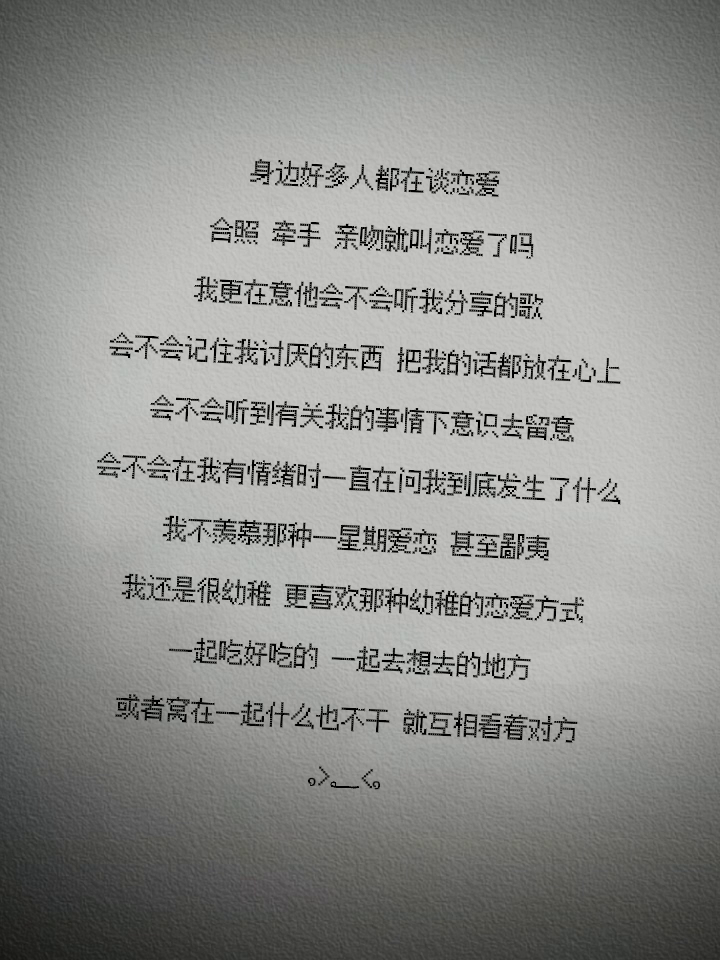 身边好多人都在谈恋爱
合照 牵手 亲吻就叫恋爱了吗
我更在意他会不会听我分享的歌
会不会记住我讨厌的东西 把我的话都放在心上
会不会听到有关我的事情下意识去留意
会不会在我有情绪时一直在问我到底发生了什么
我不羡慕那种一星期爱恋 甚至鄙夷
我还是很幼稚 更喜欢那种幼稚的恋爱方式
一起吃好吃的 一起去想去的地方
或者窝在一起什么也不干 就互相看着对方
｡>﹏<｡